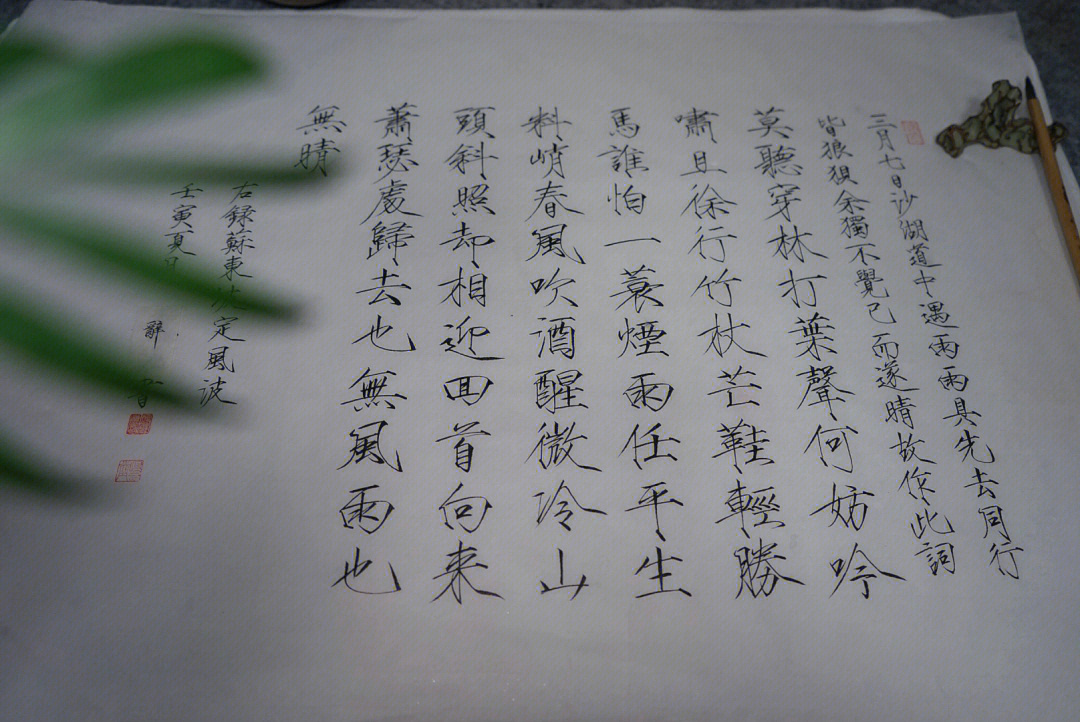 三月七日沙湖道中遇雨雨具先去同行
皆狼狽余獨不覺已而遂晴故作此詞
莫聽穿林打葉聲何妨吟
嘯且徐行竹杖芒鞋輕勝
馬誰怕一蓑煙雨任平生
料峭春風吹酒醒微冷山
頭斜照却相迎回首向来
蕭瑟處歸去也無風雨也
無晴
右録蘇東定風波
壬寅夏
辭